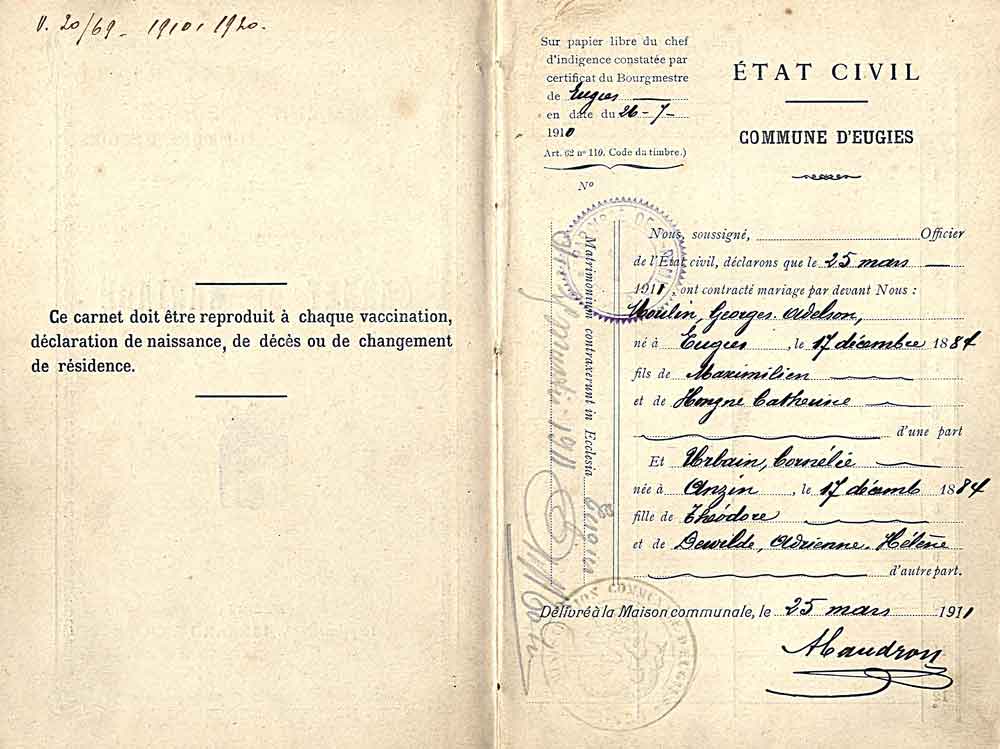 V. 20/69 - 1910, 1920.
Ce carnet doit être reproduit à chaque vaccination,
déclaration de naissance, de décès ou de changement
de résidence.
Sur papier libre du chef
d'indigence constatée par
certificat du Bourgmestre
de Eugies
en date du 26-7-
1910
Art. 62 nº 110. Code du timbre.)
Nº
ÉTAT CIVIL
COMMUNE D'EUGIES
Matrimonium contraxerunt in Ecclesia Eugies
1911
Nous, soussigné, Officier
de l'État civil, déclarons que le 25 mars
1911, ont contracté mariage par devant Nous :
Moulin, Georges Adelson,
né à Eugies, le 17 décembre 1884
fils de Maximilien
et de Hongne Catherine
d'une part
Et Urbain, Cornélie
née à Anzin, le 17 décemb 1884
fille de Théodore
et de Dewilde, Adrienne Hélène
d'autre part.
Délivré à la Maison communale, le 25 mars 1911